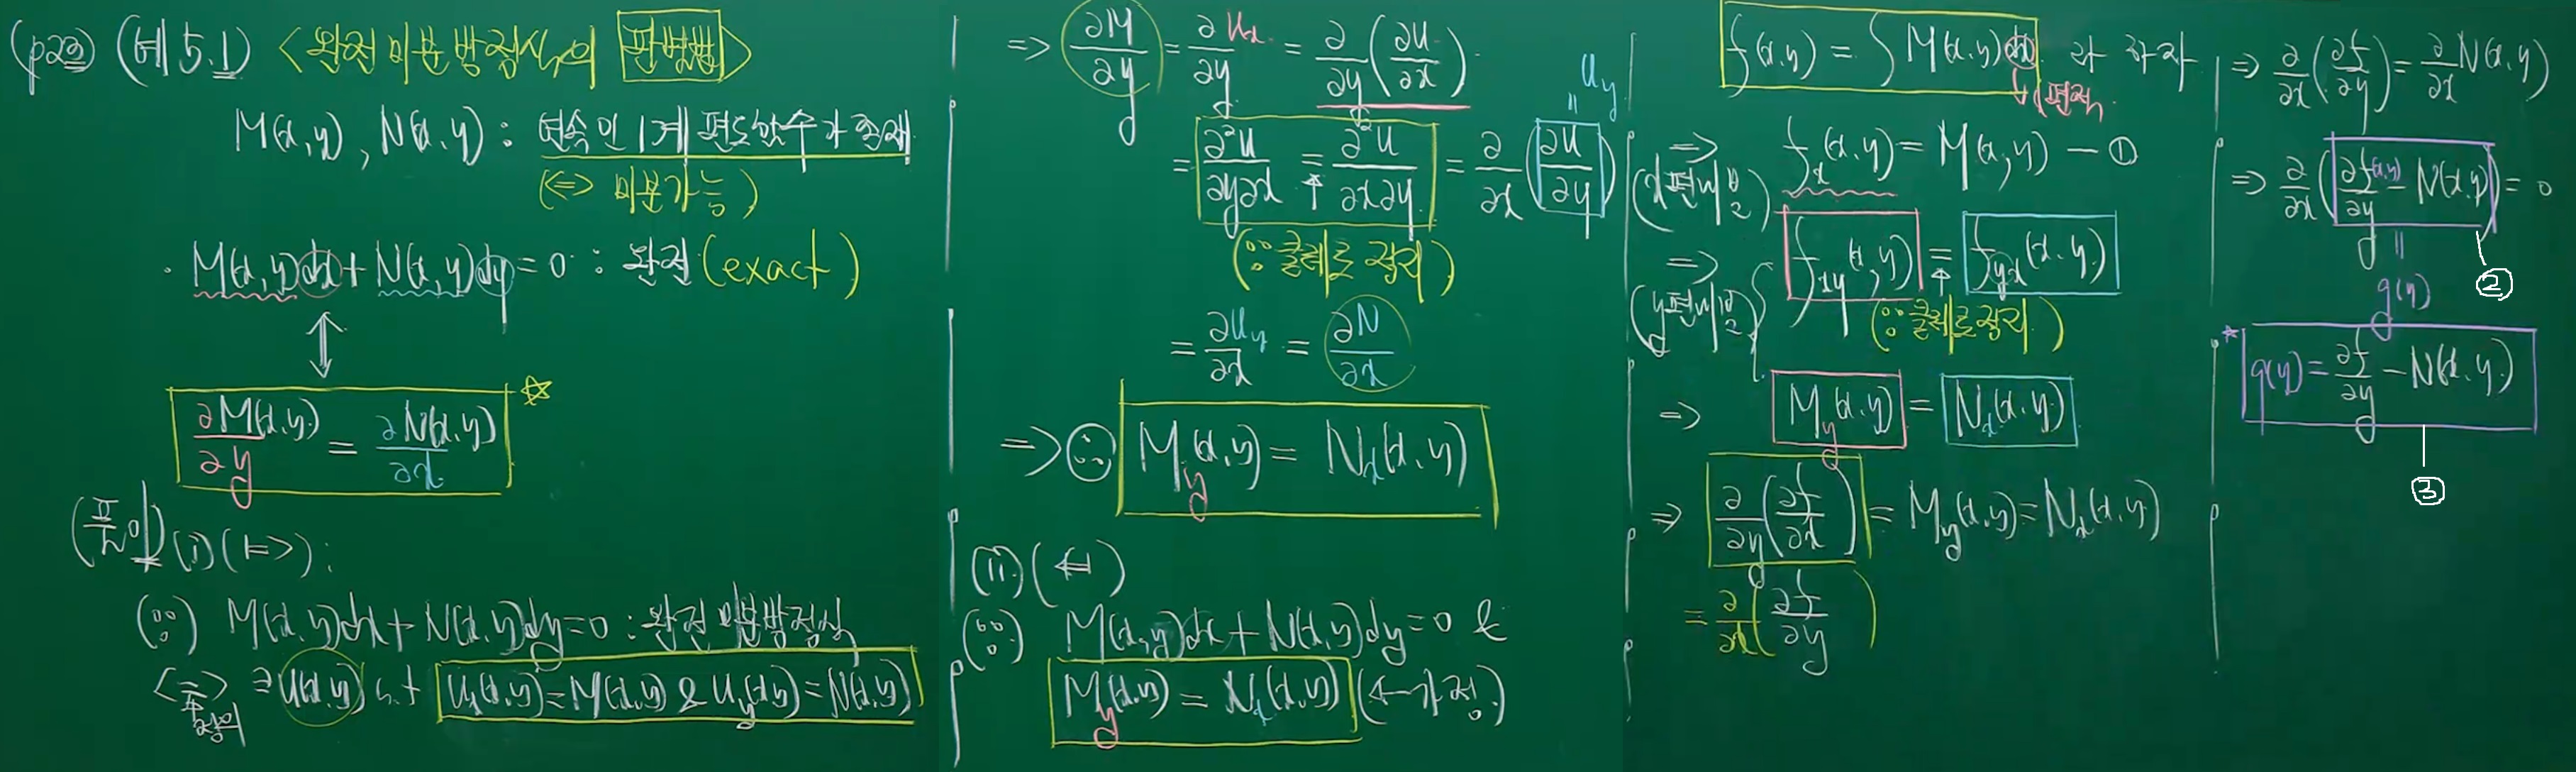 (p23) (예 5.1) <완전미분방정식의 판별법>
M(x,y), N(x,y) : 연속인 1계 편도함수가 존재
(<=> 미분가능)
· M(x,y)dx + N(x,y)dy = 0 : 완전(exact)
↕
∂M(x,y)/∂y = ∂N(x,y)/∂x ☆
(풀이) (i) (=>):
(∵) M(x,y)dx + N(x,y)dy = 0 : 완전미분방정식
<=> 정의 ∃u(x,y) s.t u_x(x,y) = M(x,y) & u_y(x,y) = N(x,y)
=> ∂M/∂y = ∂u_x/∂y = ∂/∂y (∂u/∂x)
= ∂²u/∂y∂x = ∂²u/∂x∂y = ∂/∂x (∂u/∂y)
u_y
=
(∵ 클레로 정리)
= ∂u_y/∂x = ∂N/∂x
=> ∴ M_y(x,y) = N_x(x,y)
(ii) (<=)
(∵) M(x,y)dx + N(x,y)dy = 0 &
M_y(x,y) = N_x(x,y) (← 가정)
f(x,y) = ∫ M(x,y)dx 라 하자
↳ 편적
=> (x편미분) f_x(x,y) = M(x,y) - ①
=> (y편미분) f_xy(x,y) = f_yx(x,y)
(∵ 클레로 정리)
=> M_y(x,y) = N_x(x,y)
=> ∂/∂y (∂f/∂x) = M_y(x,y) = N_x(x,y)
= ∂/∂x (∂f/∂y)
=> ∂/∂x (∂f/∂y) = ∂/∂x N(x,y)
=> ∂/∂x (∂f(x,y)/∂y - N(x,y)) = 0
= ②
g(y)
* g(y) = ∂f/∂y - N(x,y)
③